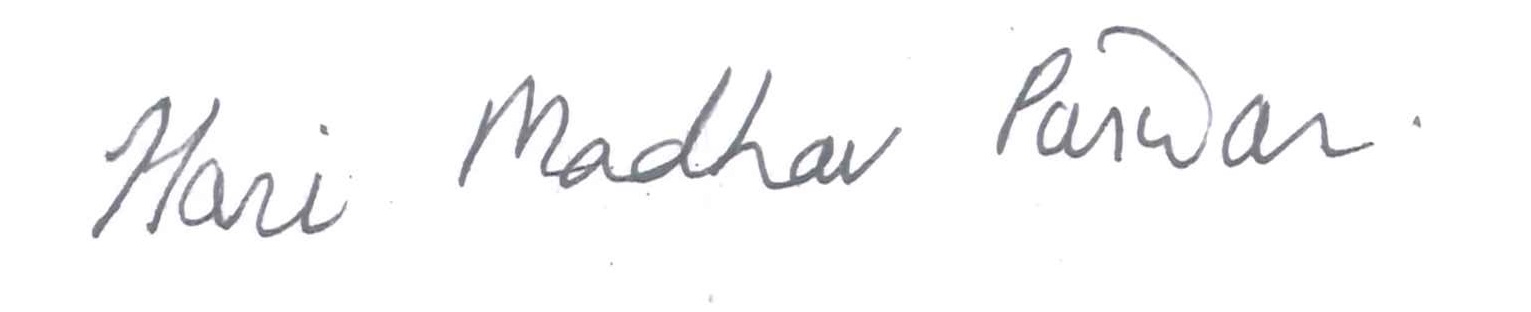 Hari Madhav Parwar.